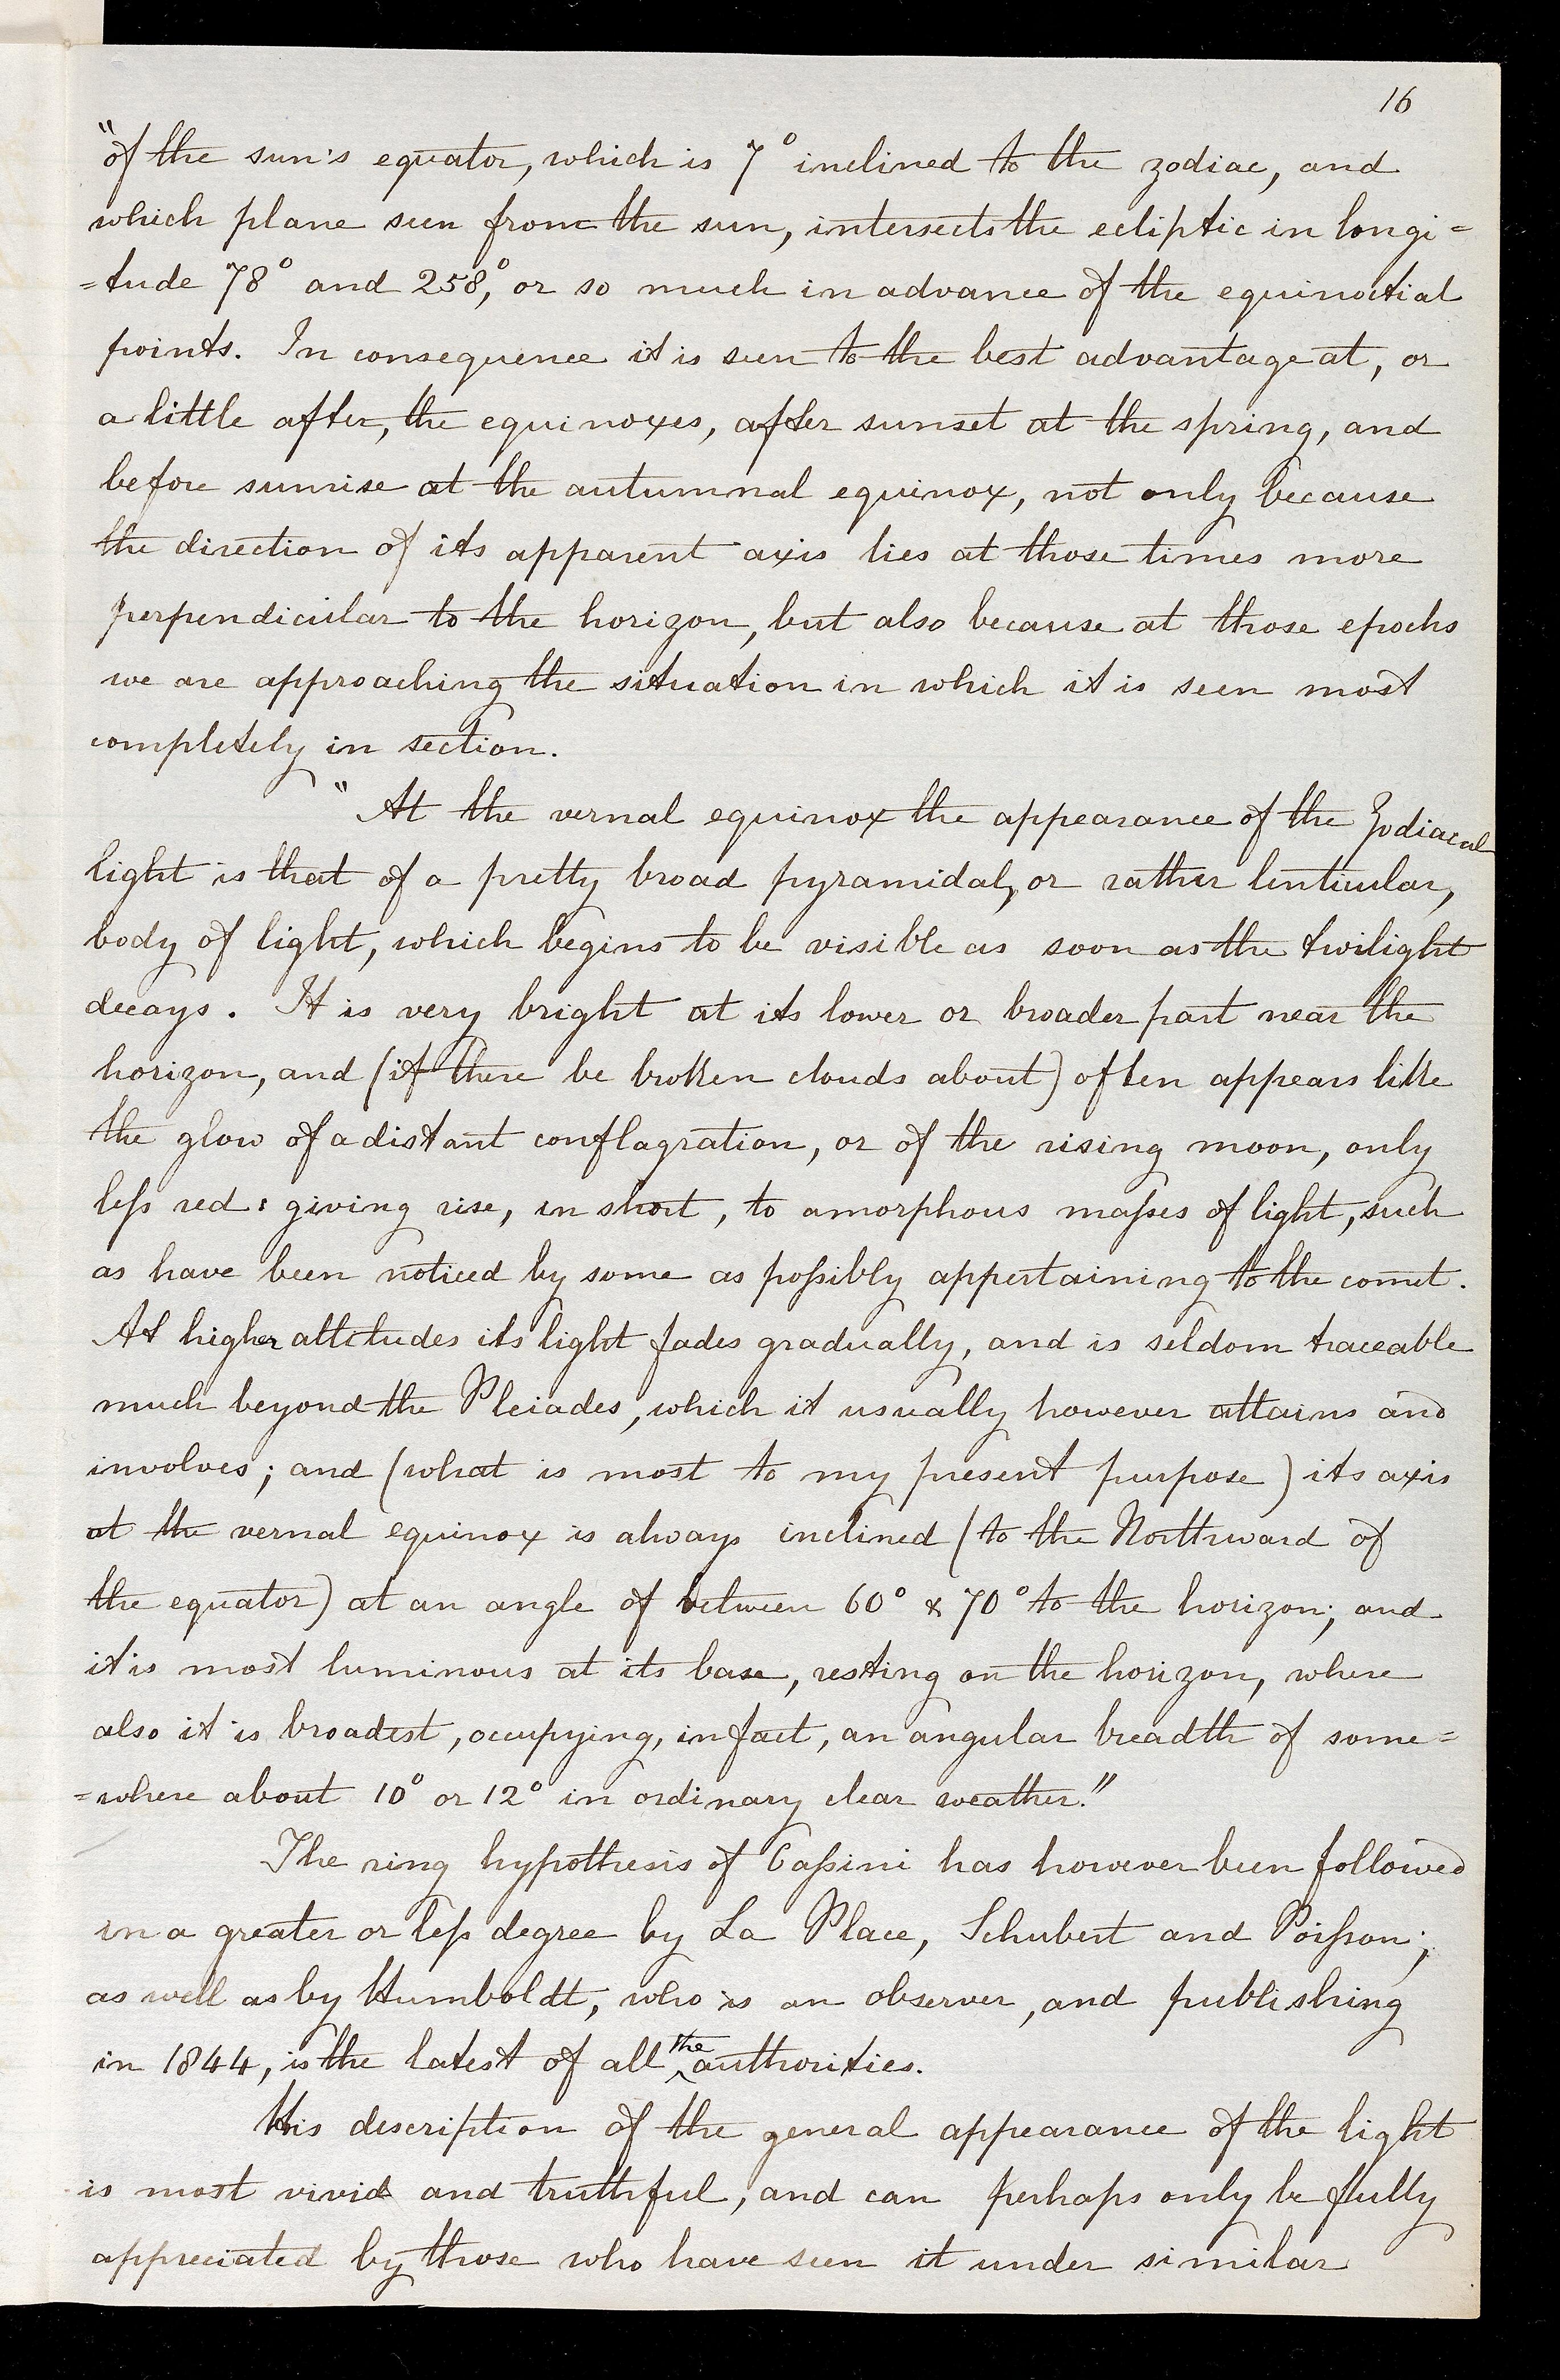 16
"of the sun's equator, which is 7° inclined to the zodiac, and
which plane seen from the sun, intersects the ecliptic in longi=
=tude 78° and 258°, or so much in advance of the equinoctial
points. In consequence it is seen to the best advantage at, or
a little after, the equinoxes, after sunset at the spring, and
before sunrise at the autumnal equinox, not only because
the direction of its apparent axis lies at those times more
perpendicular to the horizon, but also because at those epochs
we are approaching the situation in which it is seen most
completely in section.
"At the vernal equinox the appearance of the Zodiacal
light is that of a pretty broad pyramidal, or rather lenticular,
body of light, which begins to be visible as soon as the twilight
decays. It is very bright at its lower or broader part near the
horizon, and (if there be broken clouds about) often appears like
the glow of a distant conflagration, or of the rising moon, only
leſs red: giving rise, in short, to amorphous maſses of light, such
as have been noticed by some as poſsibly appertaining to the comet.
At higher altitudes its light fades gradually, and is seldom traceable
much beyond the Pleiades, which it usually however attains and
involves; and (what is most to my present purpose) its axis
at the vernal equinox is always inclined (to the Northward of
the equator) at an angle of between 60° & 70° to the horizon; and
it is most luminous at its base, resting on the horizon, where
also it is broadest, occupying, in fact, an angular breadth of some=
=where about 10° or 12° in ordinary clear weather."
The ring hypothesis of Caſsini has however been followed
in a greater or leſs degree by La Place, Schubert and Poiſson;
as well as by Humboldt, who is an observer, and publishing
in 1844, is the latest of all the authorities.
His description of the general appearance of the light
is most vivid and truthful, and can perhaps only be fully
appreciated by those who have seen it under similar